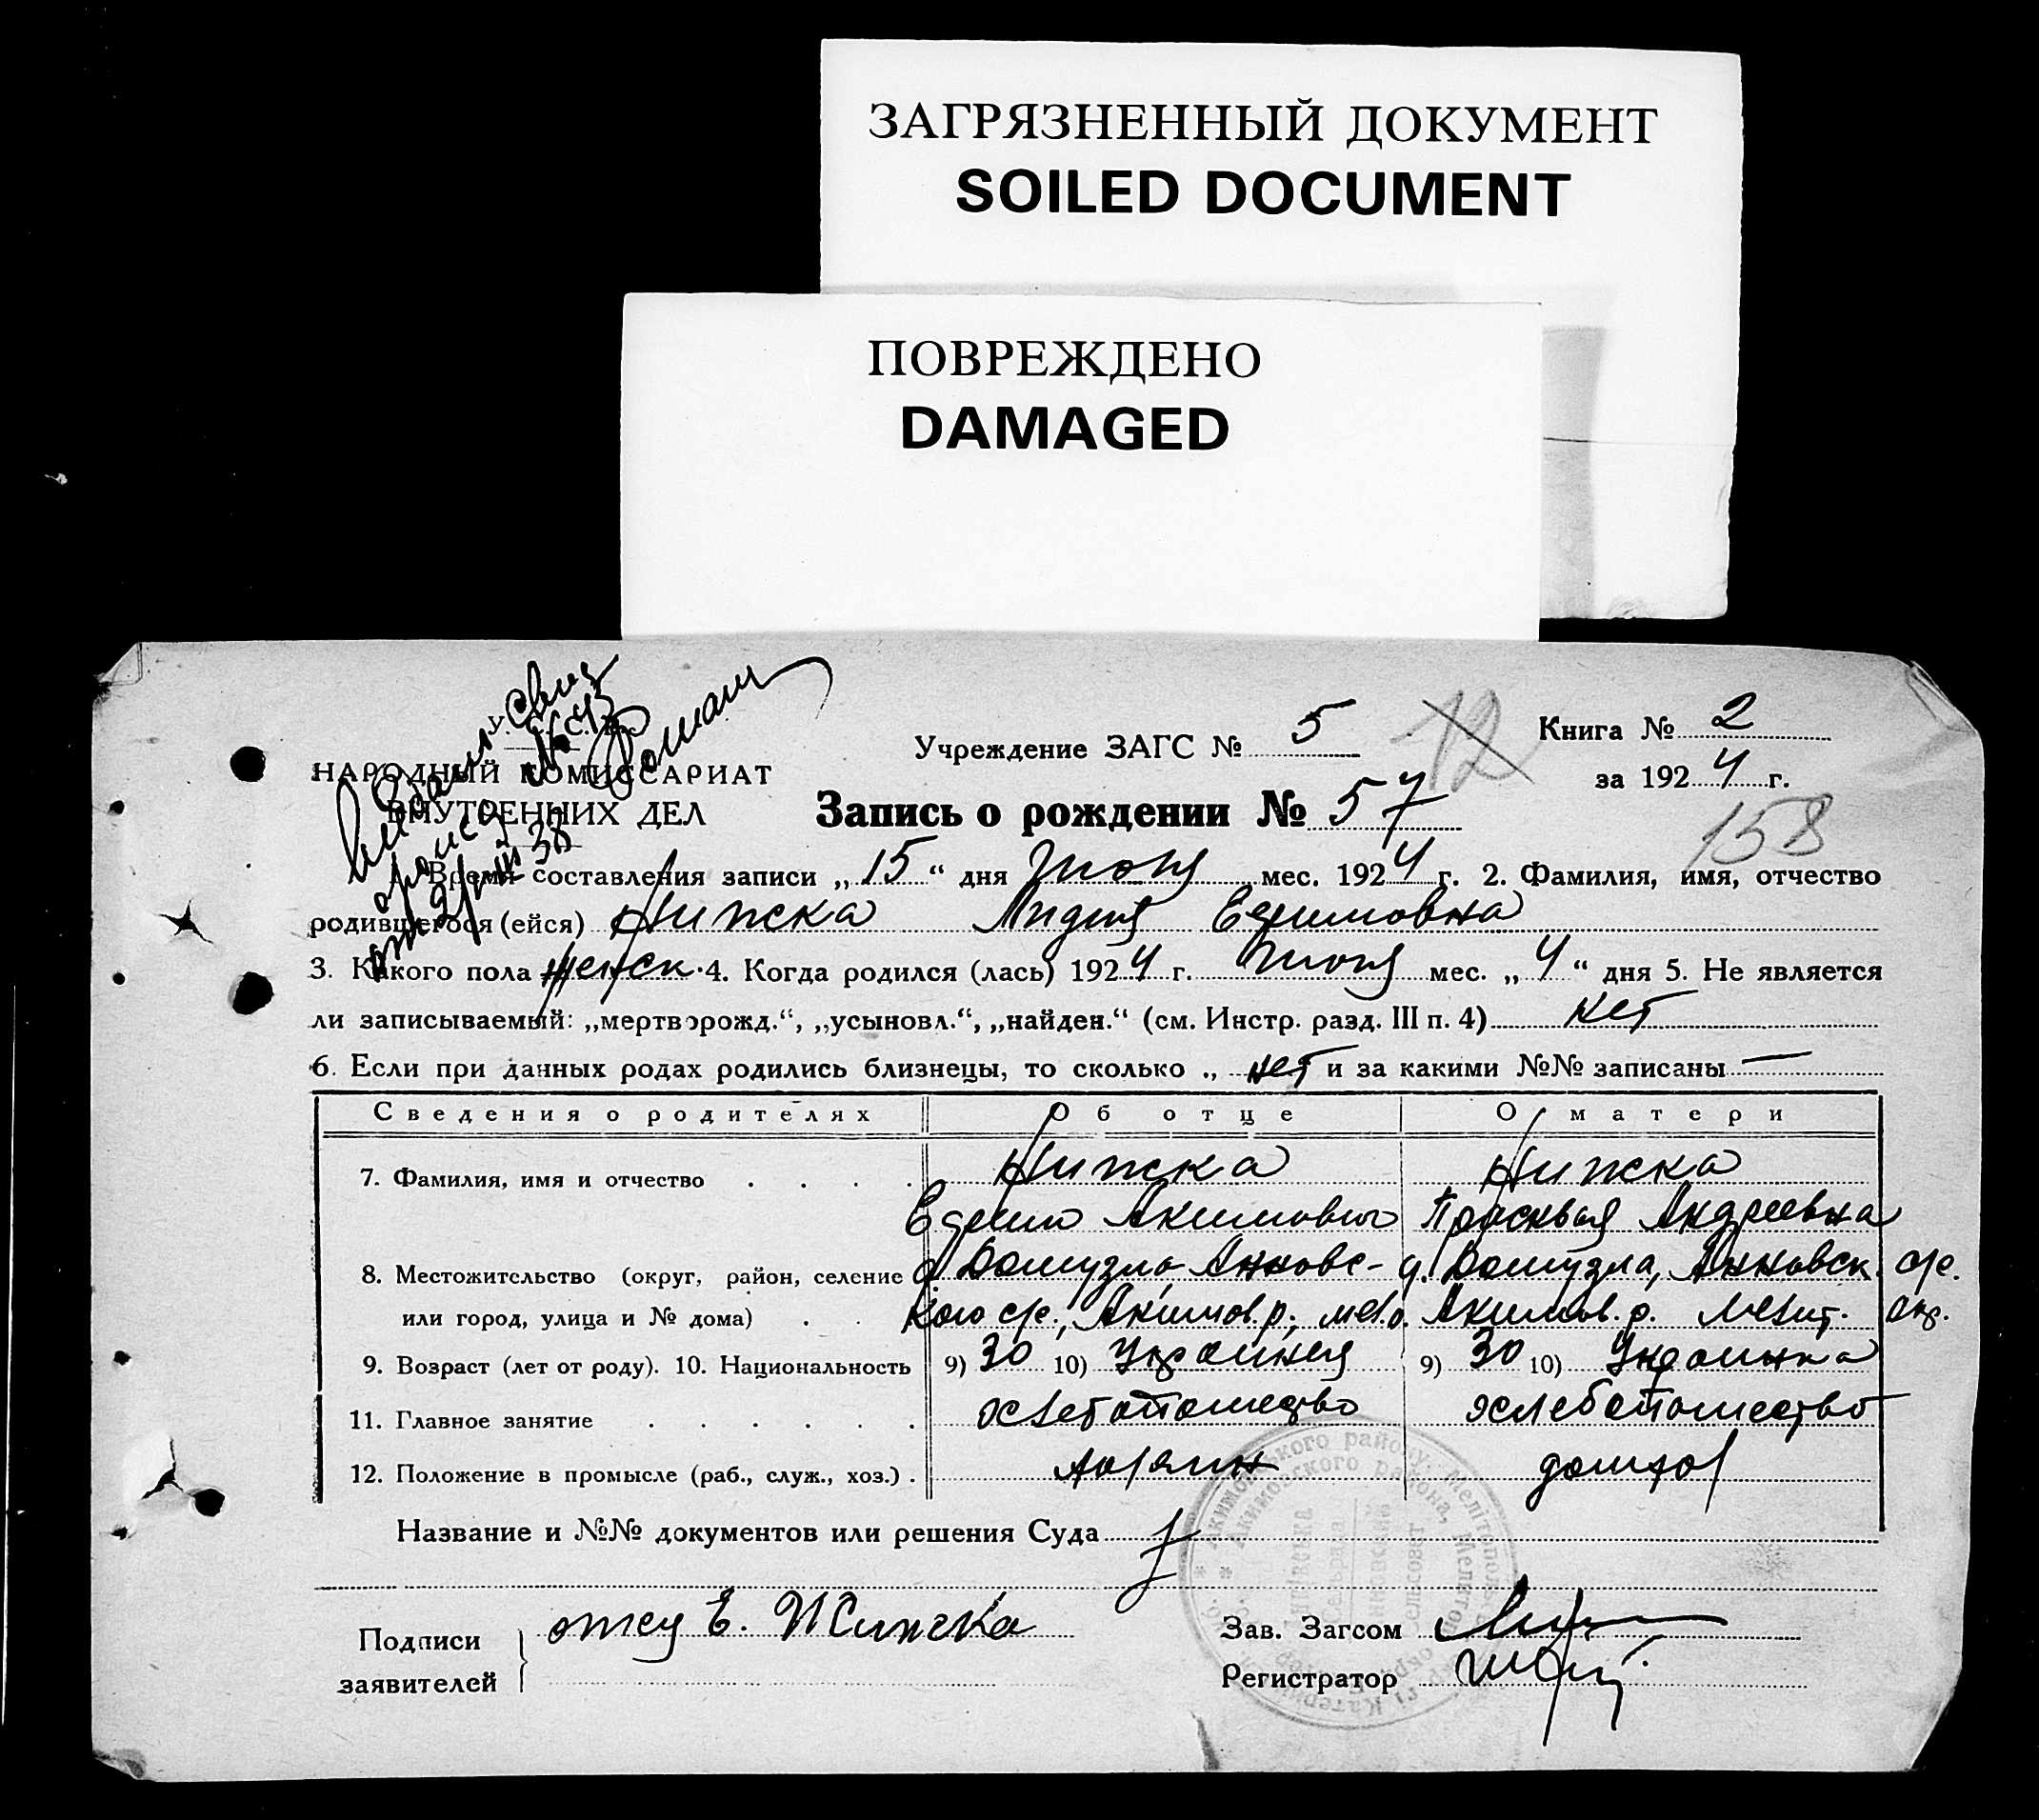 ЗАГРЯЗНЕННЫЙ ДОКУМЕНТ
SOILED DOCUMENT
ПОВРЕЖДЕНО
DAMAGED
Учреждение ЗАГС № 5
Книга № 2
НАРОДНЫЙ КОМИССАРИАТ
за 1924 г.
ВНУТРЕННИХ ДЕЛ
12
Запись о рождении № 57
158
1. Время составления записи „15“ дня Июня мес. 1924 г. 2. Фамилия, имя, отчество
родившегося (ейся) Лидия Ефимовна
3. Какого пола женск. 4. Когда родился (лась) 1924 г. Июня мес. „4“ дня 5. Не является
ли записываемый: „мертворожд.“, „усыновл.“, „найден.“ (см. Инстр. разд. III п. 4) нет
6. Если при данных родах родились близнецы, то сколько „ нет и за какими №№ записаны —
Сведения о родителях Об отце О матери
7. Фамилия, имя и отчество
Ефим Акимович Прасковья Андреевна
8. Местожительство (округ, район, селение д. Домузла Анновс- д. Домузла, Анновск. с/с.
или город, улица и № дома) кого с/с., Акимов. р., Акимов. р. Мелит. окр.
9. Возраст (лет от роду). 10. Национальность 9) 30 10) Украинец 9) 30 10) Украинка
11. Главное занятие хлебопашество хлебопашество
12. Положение в промысле (раб., служ., хоз.) хозяин домхоз
Название и №№ документов или решения Суда
Подписи заявителей отец Е.
Зав. Загсом
Регистратор